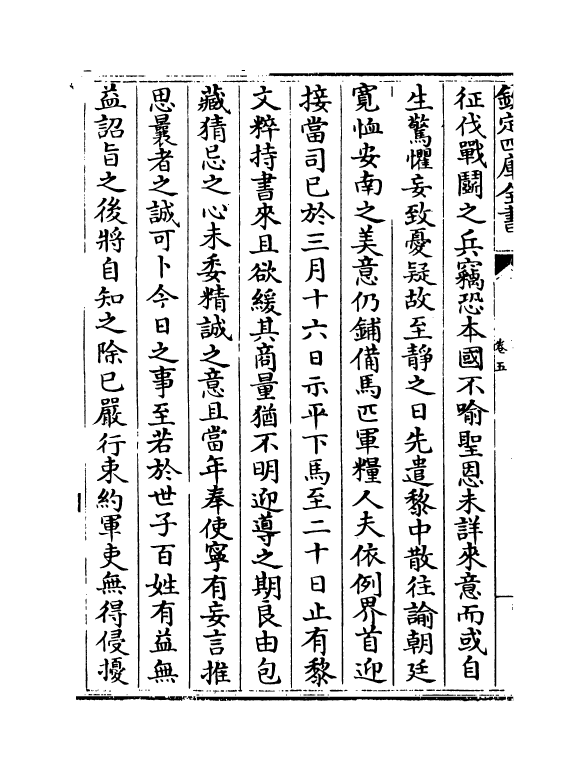 欽定四庫全書
卷五
征伐戰鬭之兵竊恐本國不喻聖恩未詳來意而或自
生驚懼妄致憂疑故至靜之日先遣黎中散往諭朝廷
寛恤安南之美意仍鋪備馬匹軍糧人夫依例界首迎
接當司已於三月十六日示平下馬至二十日止有黎
文粹持書來且欲緩其商量猶不明迎導之期良由包
藏猜忌之心未委精誠之意且當年奉使寧有妄言推
思曩者之誠可卜今日之事至若於世子百姓有益無
益詔旨之後將自知之除已嚴行束約軍吏無得侵擾